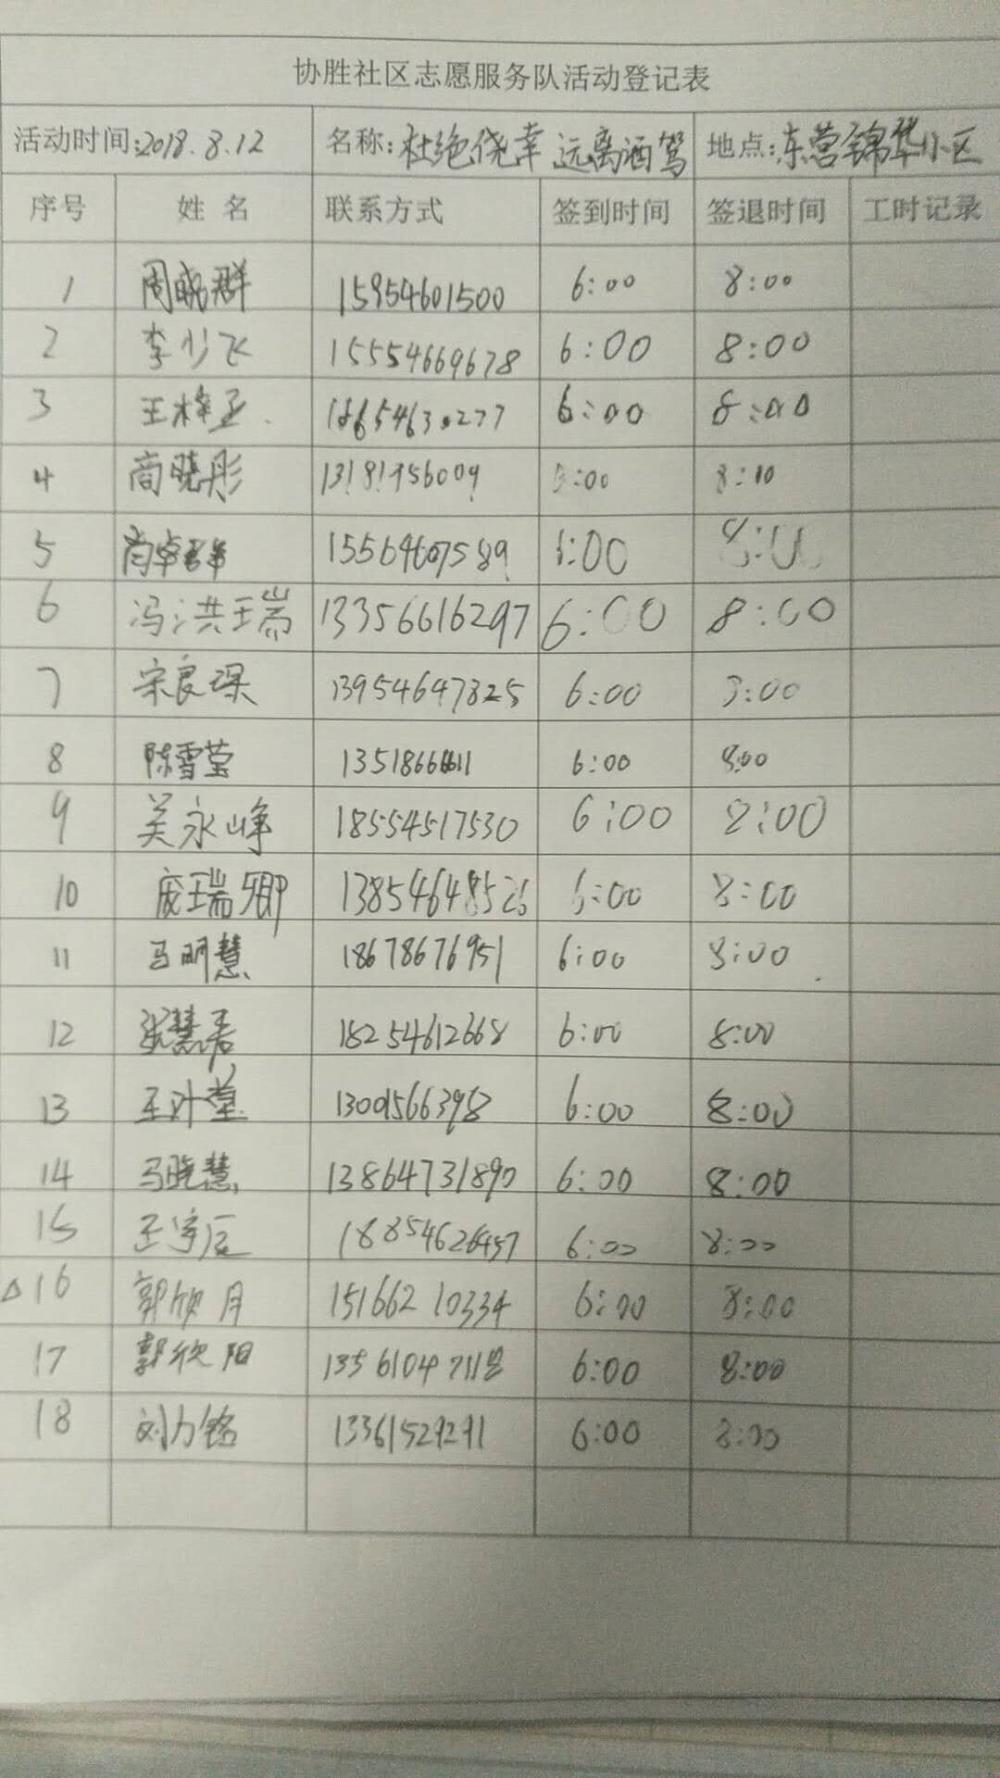 协胜社区志愿服务队活动登记表
活动时间:2018.8.12 名称:杜绝侥幸 远离酒驾 地点:东营锦华小区
序号 姓名 联系方式 签到时间 签退时间 工时记录
1 周晓群 15954601500 6:00 8:00
2 李少飞 15554669678 6:00 8:00
3 王梓丞 6:00 8:00
4 商晓彤 8:10
5 尚卓群 8:00
6 冯洪瑞 13356616297 6:00 8:00
7 宋良琛 13954647825 6:00 8:00
8 陈雪莹 6:00 8:00
9 吴永峰 18554517530 6:00 8:00
10 庞瑞卿 13854648526 6:00 8:00
11 马明慧 18678676951 6:00 8:00
12 张慧君 18254612668 6:00 8:00
13 王叶莹 13001566398 6:00 8:00
14 马晓慧 13864731890 6:00 8:00
15 王宇辰 18854626457 6:00 8:00
△16 郭欣月 15166210334 6:00 8:00
17 郭欣阳 6:00 8:00
18 刘力铭 13361529291 6:00 8:00